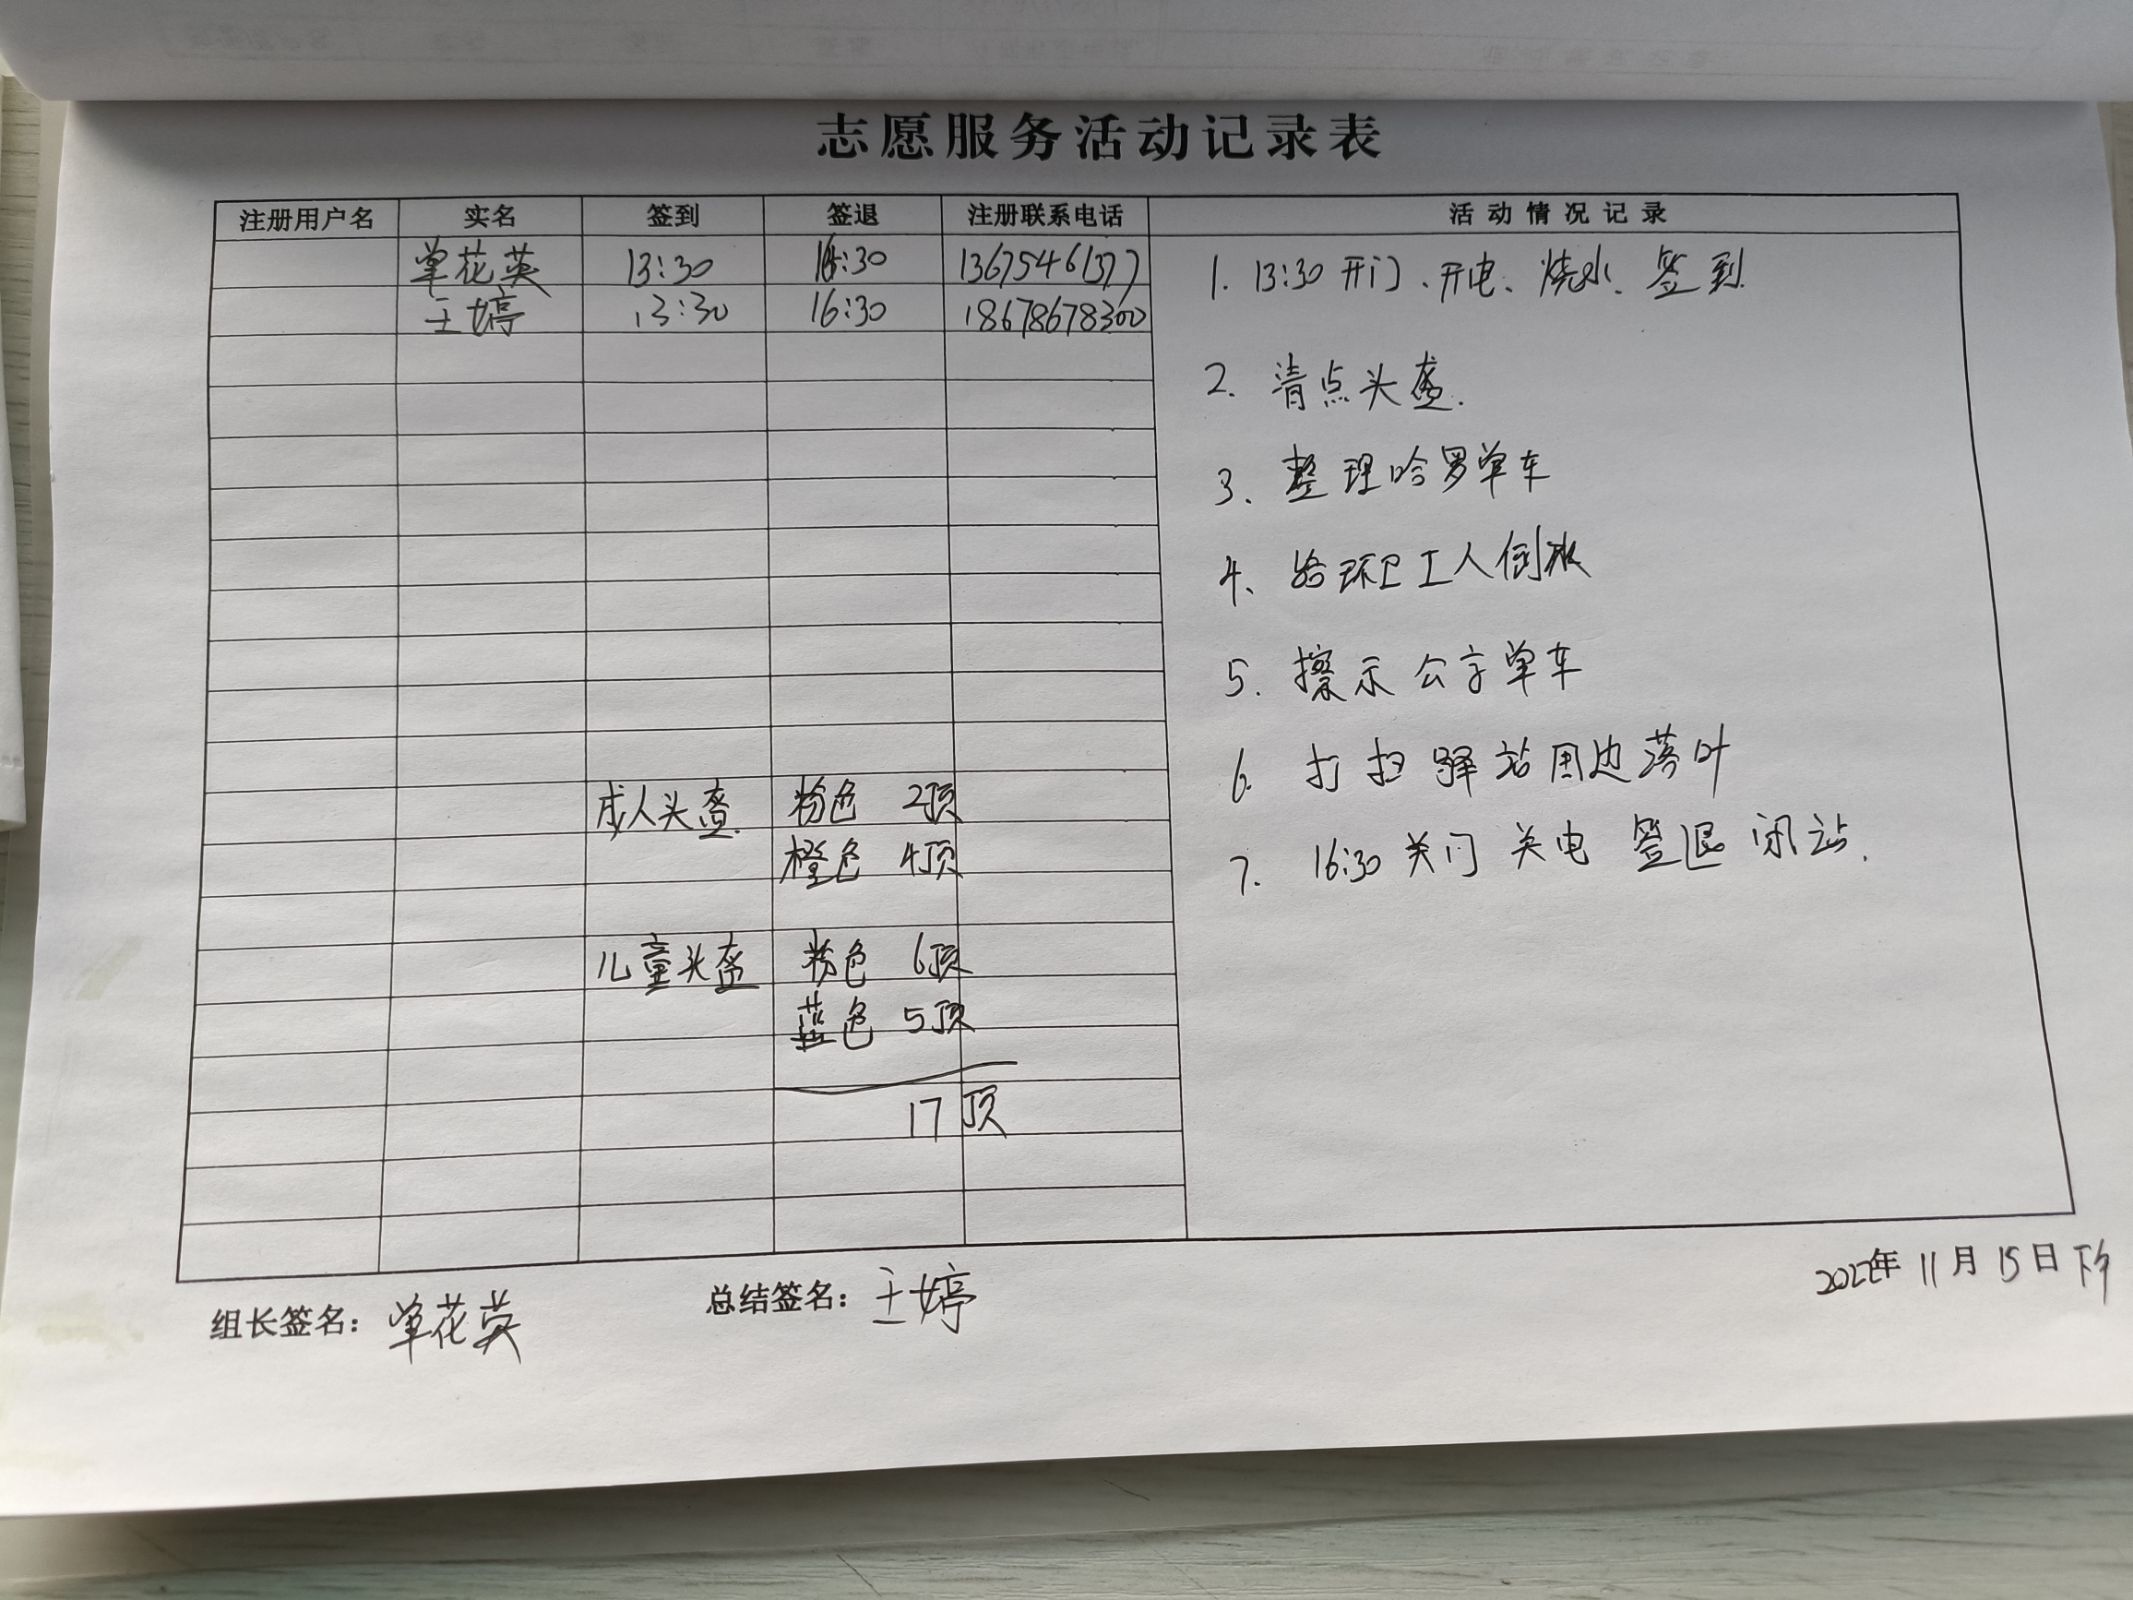 志愿服务活动记录表
注册用户名 实名 签到 签退 注册联系电话 活动情况记录
单花英 13:30 16:30 13675461377
王婷 13:30 16:30 18678678300
1. 13:30 开门、开电、烧水、签到
2. 清点头盔.
3、整理哈罗单车
4、给环卫工人倒水
5. 擦示公字单车
6. 打扫驿站周边落叶
7. 16:30 关门 关电 签退 闭站.
成人头盔 粉色 2顶
橙色 4顶
儿童头盔 粉色 6顶
蓝色 5顶
17顶
组长签名：单花英 总结签名：王婷
2022年 11月 15日 下午